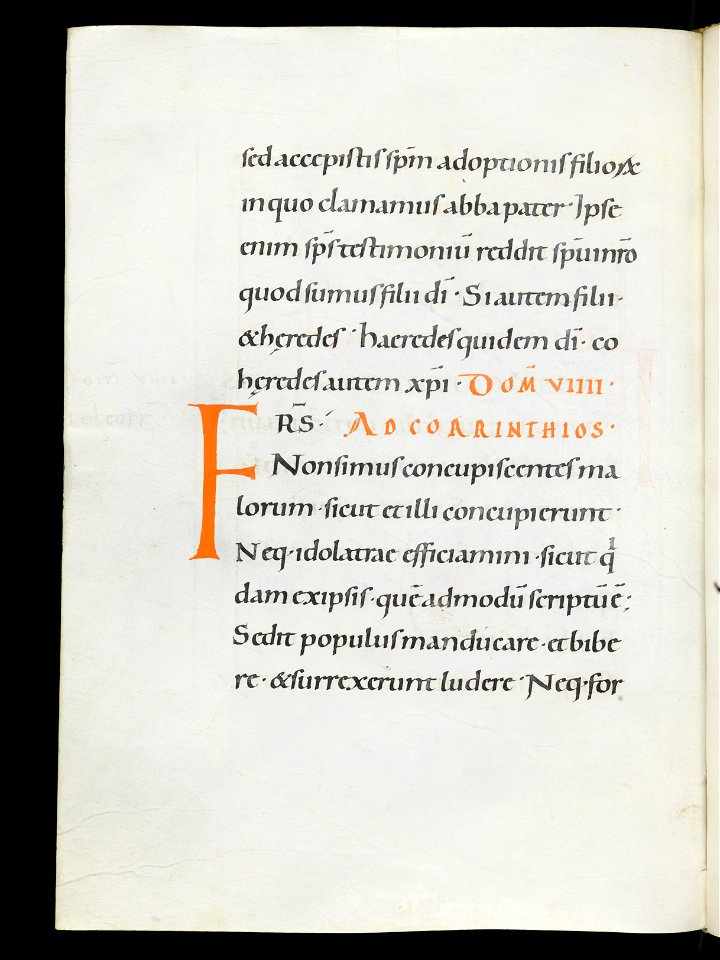 sed accepistis spm̄ adoptionis filiorū &
in quo clamamus abba pater · Ipse
enim sp̄s testimoniū reddit spūi nr̄o
quod sumus filii dī · Si autem filii ·
& hęredes · haeredes quidem dī · co
hęredes autem xp̄i · DOM̄ VIIII ·
FR̄S · AD CORRINTHIOS ·
Non simus concupiscentes ma
lorum · sicut et illi concupierunt ·
Neq· idolatrae efficiamini · sicut qͥ
dam ex ipsis · quē admodū scriptū ē ;
Sedit populus manducare · et bibe
re · & surrexerunt ludere · Neq· for